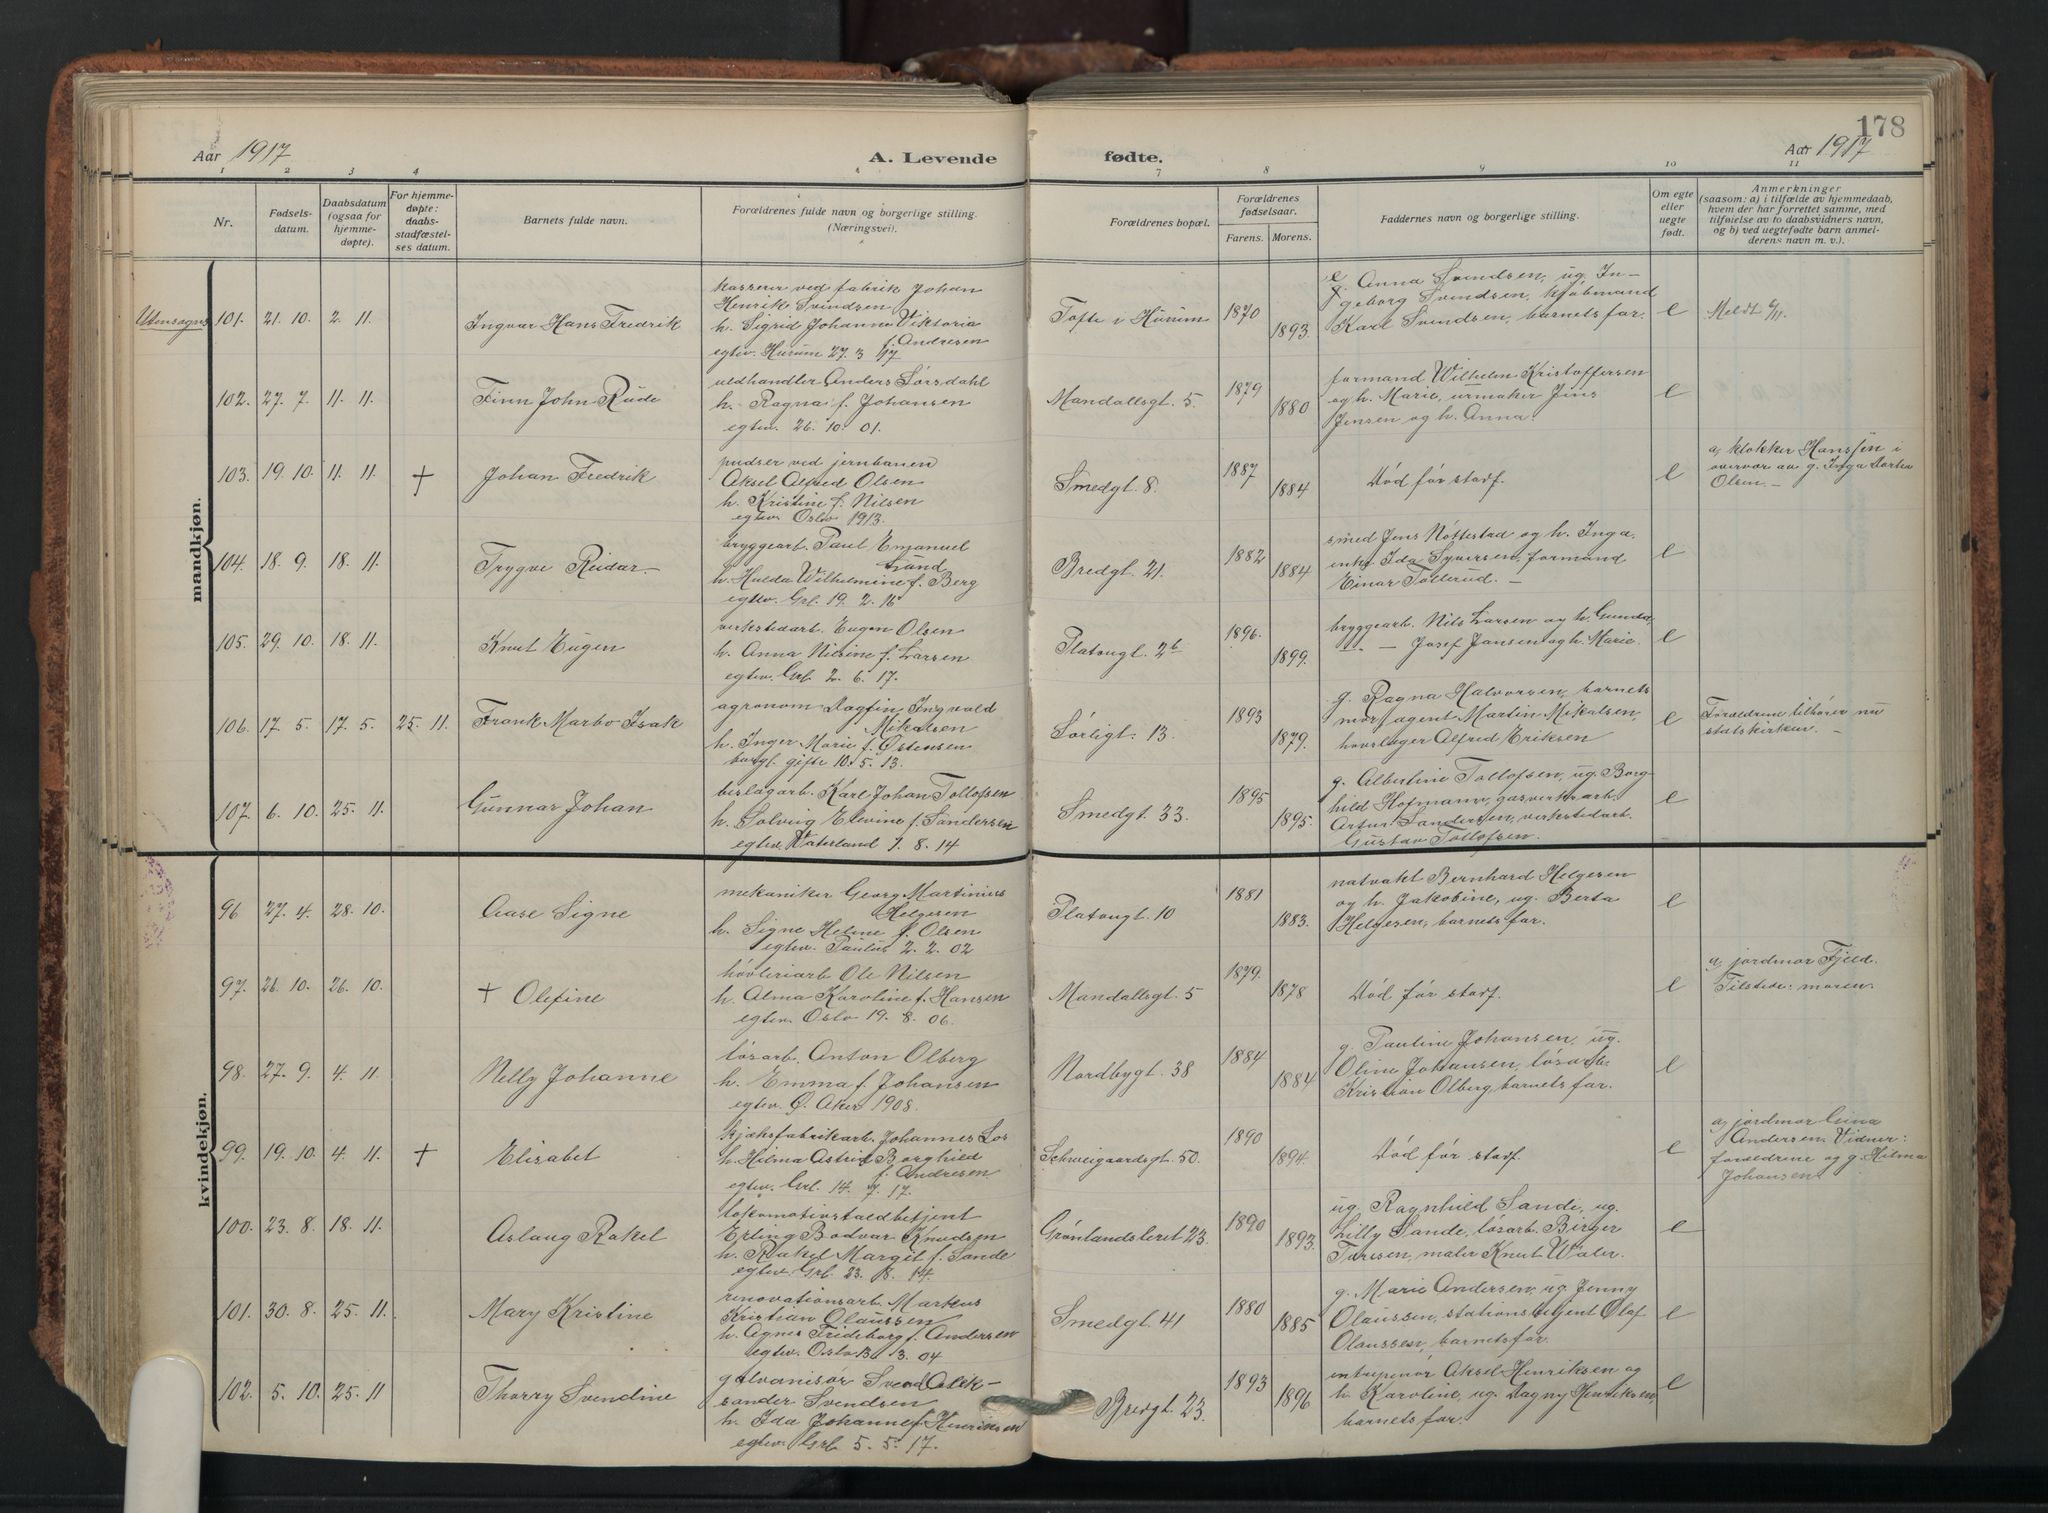 178
Aar 1917
A. Levende
fødte.
Aar 1917
1 2 3 4 7 8 9 10 11
Nr.
Fødsels-
datum.
Daabsdatum
(ogsaa for
hjemme-
døpte).
For hjemme-
døpte:
daabs-
stadfæstel-
ses datum.
Barnets fulde navn.
Forældrenes fulde navn og borgerlige stilling.
(Næringsvei).
Forældrenes bopæl.
Forældrenes
fødselsaar.
Farens. Morens.
Faddernes navn og borgerlige stilling.
Om egte
eller
uegte
født.
Anmerkninger
(saasom: a) i tilfælde av hjemmedaab,
hvem der har forrettet samme, med
tilføielse av to daabsvidners navn,
og b) ved uegtefødte barn anmel-
derens navn m. v.).
mandkjøn.
Utensogns 101. 21. 10. 2. 11.
Ingvar Hans Fredrik
kasserer ved fabrik Johan
Henrik Svindsen
h. Sigrid Johanne Viktoria
f. Andresen
egtev. Hurum 27. 3 17
Tofte i Hurum
1870
1893.
g. Anna Svendsen, ug. In-
geborg Svendsen, kjøbmand
Karl Svendsen, barnets far.
e
Meldt 6/11.
102. 27. 7. 11. 11.
Finn John Rude
uldhandler Anders Sørsdahl
h. Ragna f. Johansen
egtev. 26. 10. 01.
Mandallsgt. 5.
1879
1880
formand Wilhelm Kristoffersen
og h. Marie, urmaker Jens
Jensen og h. Anna.
e
103. 19. 10. 11. 11. †
Johan Fredrik
pudser ved jernbanen
Aksel Alfred Olsen
h. Kristine f. Nilsen
egtev. Oslo 1913.
Smedgt. 8.
1887
1884
Død før starf.
e
a, klokker Hanssen i
overvær av g. Inga Dortea
Olsen. —
104. 18. 9. 18. 11.
Trygve Reidar —
bryggearb. Paul Emanuel
Grand
h. Hulda Wilhelmine f. Berg
egtev. Grl. 19. 2. 16
Bredgt. 21.
1882
1884
smed Jens Nøttestad og h. Inga.
enkf. Ida Syversen, formand
Einar Tollerud. —
e
105. 29. 10. 18. 11.
Knut Eugen
verkstedarb. Eugen Olsen
h. Anna Nilsine f. Larsen
egtev. Grl. 2. 6. 17.
Platougt. 2b
1896.
1899.
bryggearb. Nils Larsen og h. Gunda
—„— Josef Jansen og h. Marie.
e
106. 17. 5. 17. 5. 25. 11.
Frank Marbo Isak
agronom Dagfin Ingvald
Mikalsen
h. Inger Marie f. Østensen
borgl. gifte 10. 5. 13.
Sørligt. 13.
1893
1879.
g. Ragna Halvorsen, barnets
mor, agent Martin Mikalsen,
hovslager Alfred Eriksen
e
Forældrene tilhører nu
statskirken. —
107. 6. 10. 25. 11.
Gunnar Johan
beslagarb. Karl Johan Tollofsen
h. Solveig Elevine f. Sandersen
egtev. Vaterland 1. 8. 14
Smedgt. 33.
1895
1895.
g. Albertine Tollofsen, ug. Borg-
hild Hofmann, gasverkarb.
Artur Sandersen, verkstedarb.
Gustav Tollofsen.
e
kvindekjøn.
96 27. 4. 28. 10.
Aase Signe
mekaniker Georg Martinius
Helgesen
h. Signe Helene f. Olsen
egtev. Paulus 2. 2. 02
Platougt. 10
1881
1883.
natvakt Bernhard Helgesen
og h. Jakobine, ug. Berta
Helgesen, barnets far.
e
97. 26. 10. 26. 10.
† Olefine
høvleriarb Ole Nilsen
h. Alma Karoline f. Hansen
egtev. Oslo 19. 8. 06.
Mandallsgt. 5
1879.
1878
Død før starf.
e
a, jordmor Fjeld.
Tilstede: moren.
98. 27. 9. 4. 11.
Nelly Johanne
løsarb. Anton Olberg
h. Emma f. Johansen
egtev. Ø. Aker 1908.
Nordbygt. 38
1884
1884
g. Pauline Johansen, ug.
Oline Johansen, løsarb.
Kristian Olberg, barnets far.
e
99. 19. 10. 4. 11. †
Elisabet
kjæksfabrikarb. Johannes Los
h. Hilma Astrid Borghild
f. Andresen
egtev. Grl. 14. 7. 17.
Schweigaardsgt. 50.
1890
1894.
Død før starf.
e
a, jordmor Gina
Andersen. Vidner:
forældrene og g. Hilma
Johansen
100. 23. 8. 18. 11.
Aslaug Rakel
lokomotivstaldbetjent
Erling Bodvar Knudsen
h. Rakel Margit f. Sande
egtev. Grl. 23. 8. 14.
Grønlandsleret 23.
1890
1893.
ug. Ragnhild Sande, ug.
Lilly Sande, løsarb. Birger
Turesen, maler Knut Waler.
e
101. 30. 8. 25. 11.
Mary Kristine
renovationsarb. Markus
Kristian Olaussen
h. Agnes Frideborg f. Andersen
egtev. Oslo 13. 3. 04
Smedgt. 41
1880
1885
g. Marie Andersen, ug. Jenny
Olaussen, stationsbetjent Olaf
Olaussen, barnets far.
e
102. 5. 10. 25. 11
Thorry Svendine
galvanisør Svend Alek-
sander Svendsen
h. Ida Johanne f. Henriksen
egtev. Grl. 5. 5. 17.
Bredgt. 23.
1893
1896
entrepenør Aksel Henriksen og
h. Karoline, ug. Dagny Henriksen,
barnets far.
e